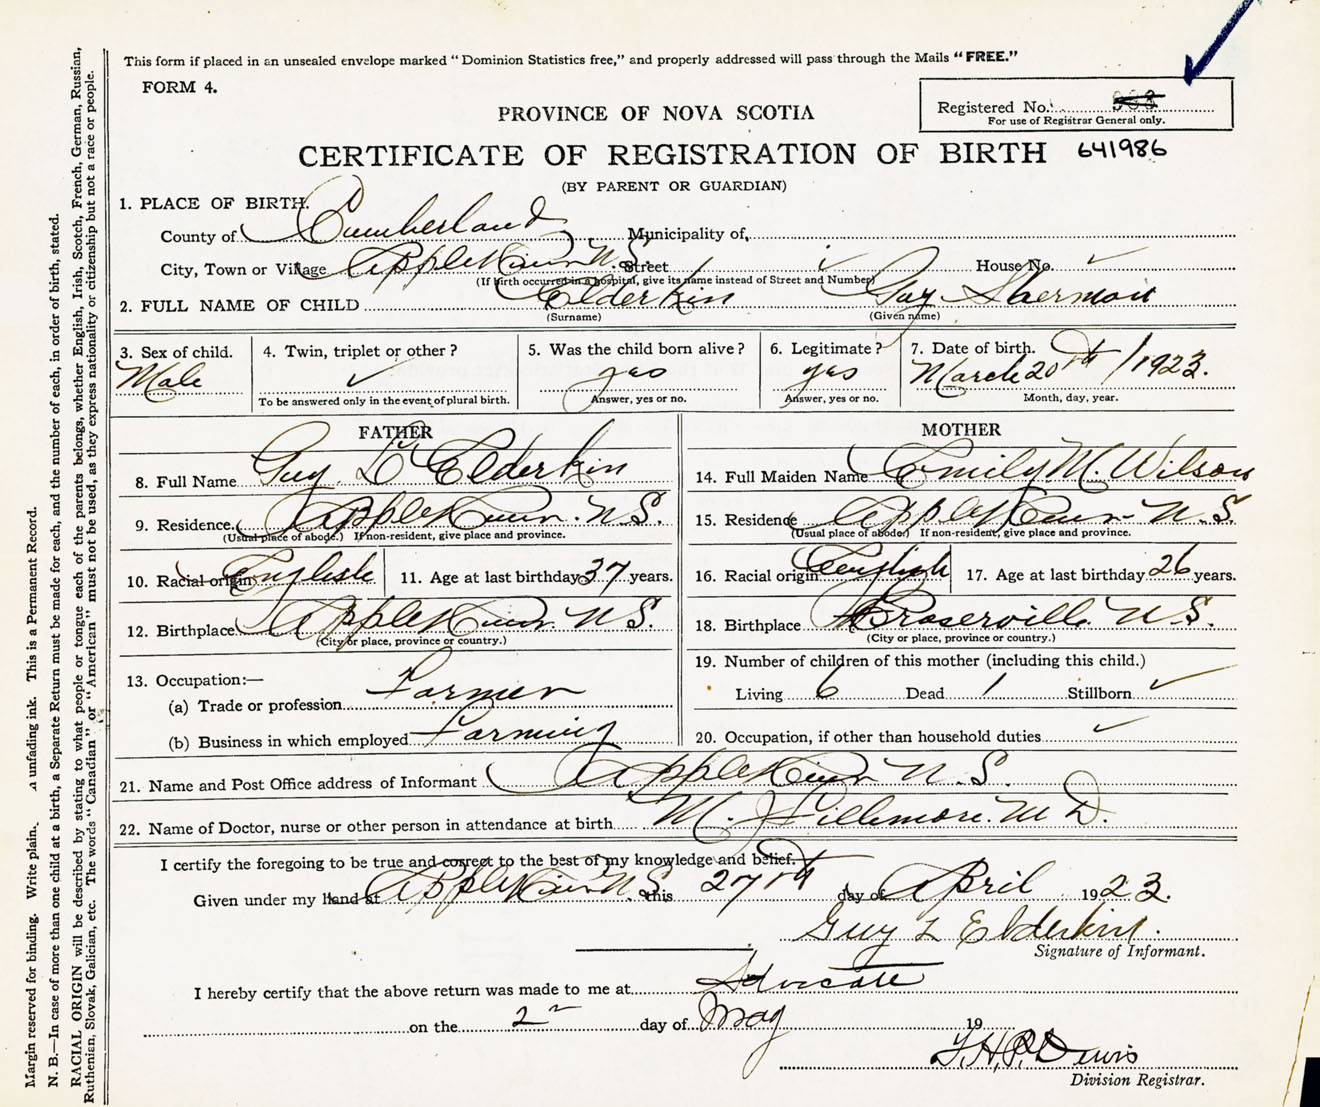 This form if placed in an unsealed envelope marked "Dominion Statistics free," and properly addressed will pass through the Mails "FREE."
FORM 4.
Registered No.
For use of Registrar General only.
PROVINCE OF NOVA SCOTIA
CERTIFICATE OF REGISTRATION OF BIRTH 641986
(BY PARENT OR GUARDIAN)
1. PLACE OF BIRTH.
County of Cumberland Municipality of,
City, Town or Village Apple River N.S. Street House No.
(If birth occurred in a hospital, give its name instead of Street and Number)
2. FULL NAME OF CHILD Elderkin Guy Sherman
(Surname) (Given name)
3. Sex of child. 4. Twin, triplet or other? 5. Was the child born alive? 6. Legitimate? 7. Date of birth.
Male ✓ yes yes March 20th/1923.
To be answered only in the event of plural birth. Answer, yes or no. Answer, yes or no. Month, day, year.
FATHER MOTHER
8. Full Name Guy L Elderkin 14. Full Maiden Name Emily M. Wilson
9. Residence. Apple River. N.S. 15. Residence Apple River N.S.
(Usual place of abode.) If non-resident, give place and province. (Usual place of abode) If non-resident, give place and province.
10. Racial origin English 11. Age at last birthday 37 years. 16. Racial origin English 17. Age at last birthday 26 years.
12. Birthplace. Apple River. N.S. 18. Birthplace N.S.
(City or place, province or country.) (City or place, province or country.)
13. Occupation:— 19. Number of children of this mother (including this child.)
(a) Trade or profession Farmer Living 6 Dead 1 Stillborn ✓
(b) Business in which employed Farming 20. Occupation, if other than household duties ✓
21. Name and Post Office address of Informant Apple River N.S.
22. Name of Doctor, nurse or other person in attendance at birth M. J Fillmore. M D.
I certify the foregoing to be true and correct to the best of my knowledge and belief.
Given under my hand at Apple River N.S. this 27th day of April 1923.
Guy L Elderkin.
Signature of Informant.
I hereby certify that the above return was made to me at Advocate
on the 2 day of May 19
Division Registrar.
Margin reserved for binding. Write plain. A unfading ink. This is a Permanent Record.
N. B.—In case of more than one child at a birth, a Separate Return must be made for each, and the number of each, in order of birth, stated.
RACIAL ORIGIN will be described by stating to what people or tongue each of the parents belongs, whether English, Irish, Scotch, French, German, Russian,
Ruthenian, Slovak, Galician, etc. The words "Canadian" or "American" must not be used, as they express nationality or citizenship but not a race or people.